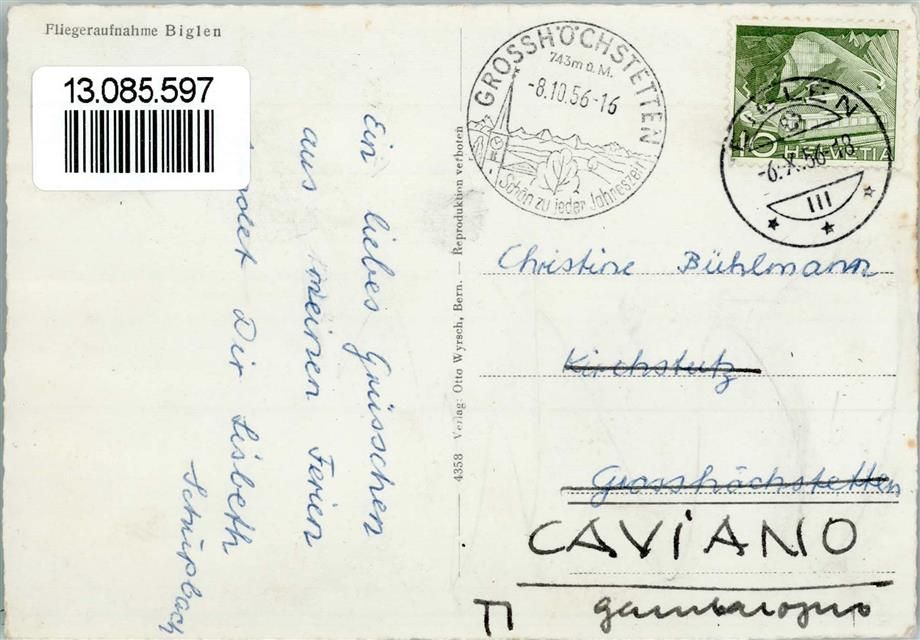 Fliegeraufnahme Biglen
13.085.597
Ein liebes Grüsschen
aus meinen Ferien
sendet Dir Lisbeth
Schüpbach
4358 Verlag: Otto Wyrsch, Bern. — Reproduktion verboten
GROSSHÖCHSTETTEN
743m ü. M.
-8.10.56-16
Schön zu jeder Jahreszeit
HELVETIA
BIGLEN
-6.X.56-18
III
Christine Bühlmann
Kirchstutz
Grosshöchstetten
CAVIANO
gambarogno